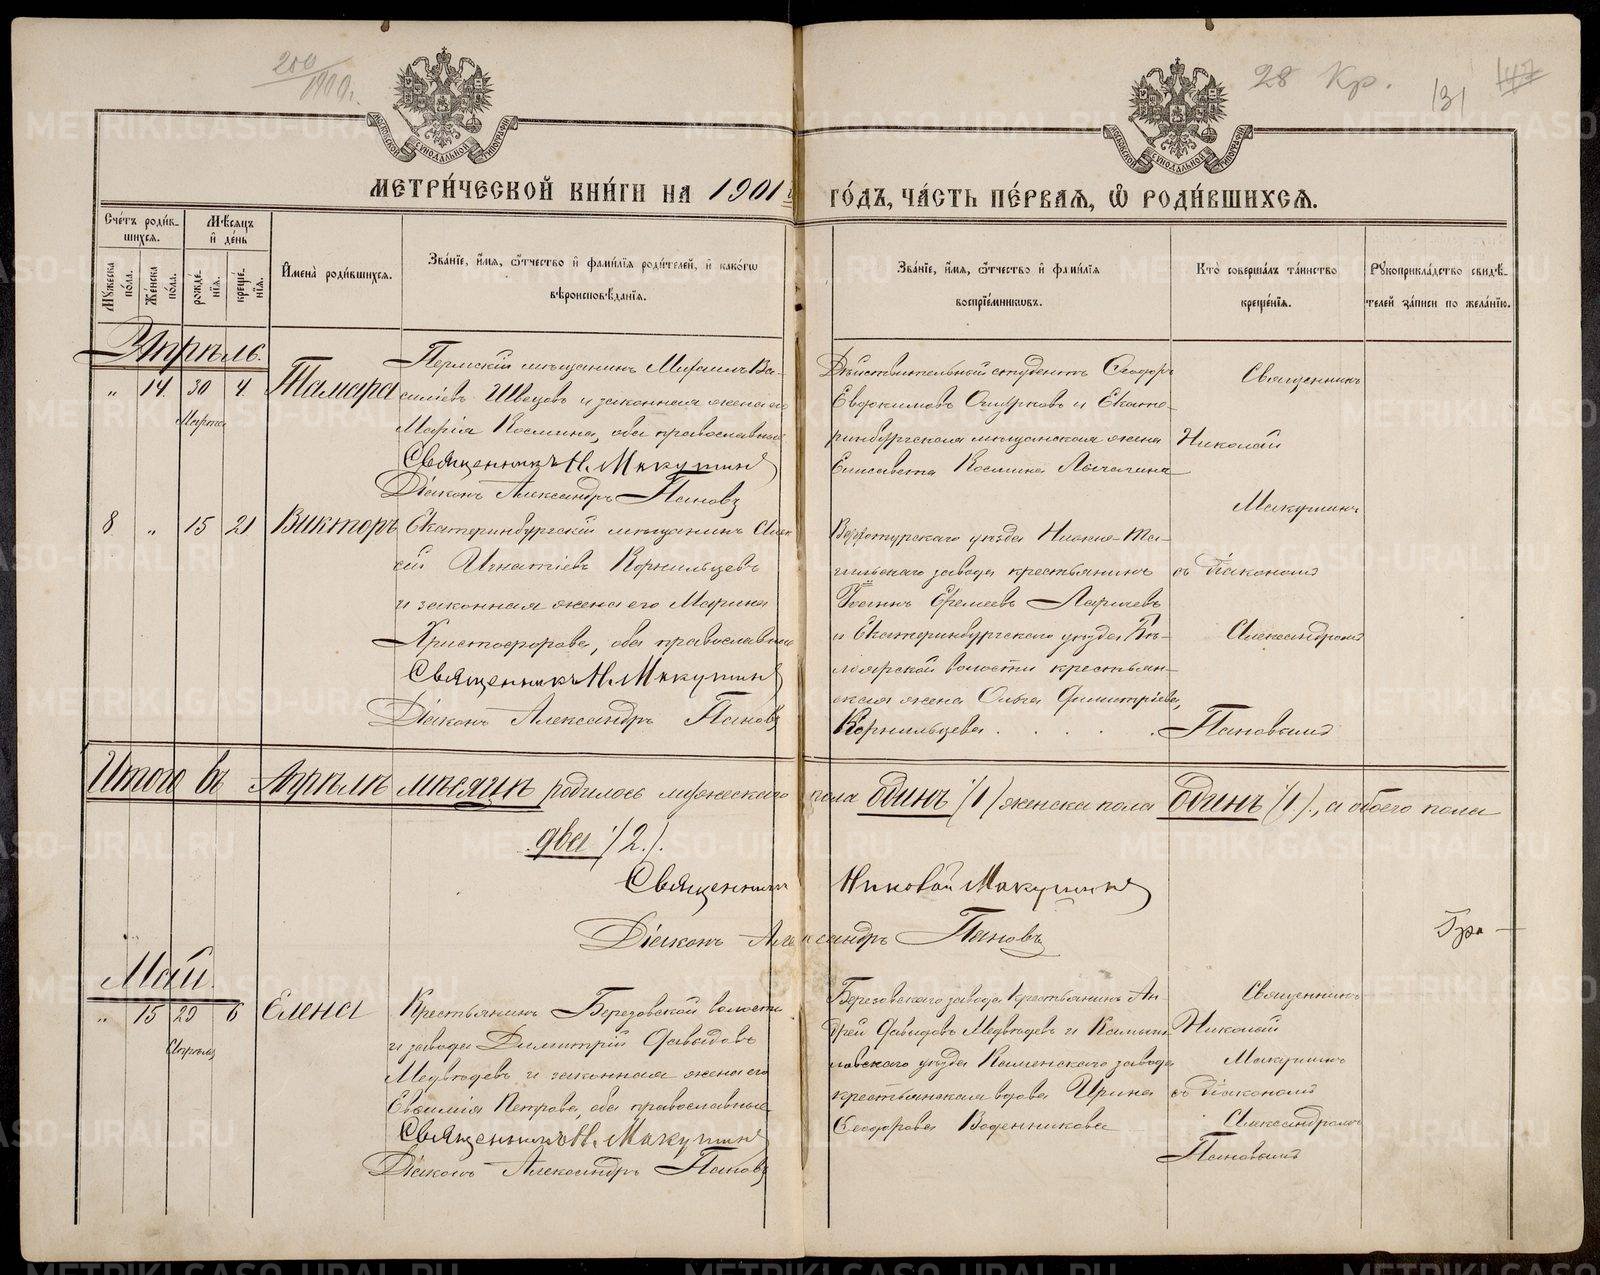 200
1900 г.
28 Кр.
131
147
МОСКОВСКОЙ СУНОДАЛЬНОЙ ТИПОГРАФІИ
МОСКОВСКОЙ СУНОДАЛЬНОЙ ТИПОГРАФІИ
МЕТРИ́ЧЕСКОЙ КНИ́ГИ НА 1901 ГО́ДЪ, ЧА́СТЬ ПЕ́РВАѦ, Ѡ РОДИ́ВШИХСѦ.
Сче́тъ роди́в-
шихсѧ.
Мѣ́сѧцъ
и҆ де́нь
Мꙋ́жеска по́ла.
Же́нска по́ла.
рожде́-
нїѧ.
креще́-
нїѧ.
И҆мена̀ роди́вшихсѧ.
Зва́нїе, и҆́мѧ, ѻ҆́тчество и҆ фами́лїѧ роди́телей, и҆ како́гѡ
вѣроисповѣ́данїѧ.
Зва́нїе, и҆́мѧ, ѻ҆́тчество и҆ фами́лїѧ
воспрїе́мникѡвъ.
Кто̀ соверша́лъ та́инство
креще́нїѧ.
Рꙋкоприкла́дство свидѣ́-
телей за́писи по жела́нїю.
Апрѣль.
„ 14. 30 4.
Марта
Тамара
Пермскій мѣщанинъ Михаилъ Ва-
силіевъ Швецовъ и законная жена его
Марія Космина, оба православные
Священникъ Н. Макушинъ
Діаконъ Александръ Пановъ
Дѣйствительный студентъ Ѳеодоръ
Евдокимовъ и Екате-
ринбургская мѣщанская жена
Елисавета Космина
Священникъ
Николай
Макушинъ
8 „ 15 21
Викторъ
Екатеринбургскій мѣщанинъ Алек-
сѣй Игнатіевъ Корнильцевъ
и законная жена его Марина
Христофорова, оба православные
Священникъ Н. Макушинъ
Діаконъ Александръ Пановъ
Верхотурскаго уѣзда Нижне-Та-
гильскаго завода крестьянинъ
Іоаннъ Ефремовъ Ларичевъ
и Екатеринбургскаго уѣзда Бѣ-
лоярской волости крестьян-
ская жена Ольга Димитріева
Корнильцева . . . .
съ діакономъ
Александромъ
Пановымъ
Итого въ Апрѣлѣ мѣсяцѣ родилось мужескаго пола одинъ /1/ женска пола одинъ /1/, а обоего пола
два /2/.
Священникъ Николай Макушинъ
Діаконъ Александръ Пановъ
Май.
„ 15 29 6
Апрѣля
Елена
Крестьянинъ Березовской волости
и завода Димитрій Давыдовъ
Медвѣдевъ и законная жена его
Евфимія Петрова, оба православные
Священникъ Н. Макушинъ
Діаконъ Александръ Пановъ
Березовскаго завода крестьянинъ Ан-
дрей Давыдовъ Медвѣдевъ и Камыш-
ловскаго уѣзда Каменскаго завода
крестьянская вдова Ирина
Ѳеодорова Воденникова
Священникъ
Николай
Макушинъ
съ діакономъ
Александромъ
Пановымъ
METRIKI.GASO-URAL.RU